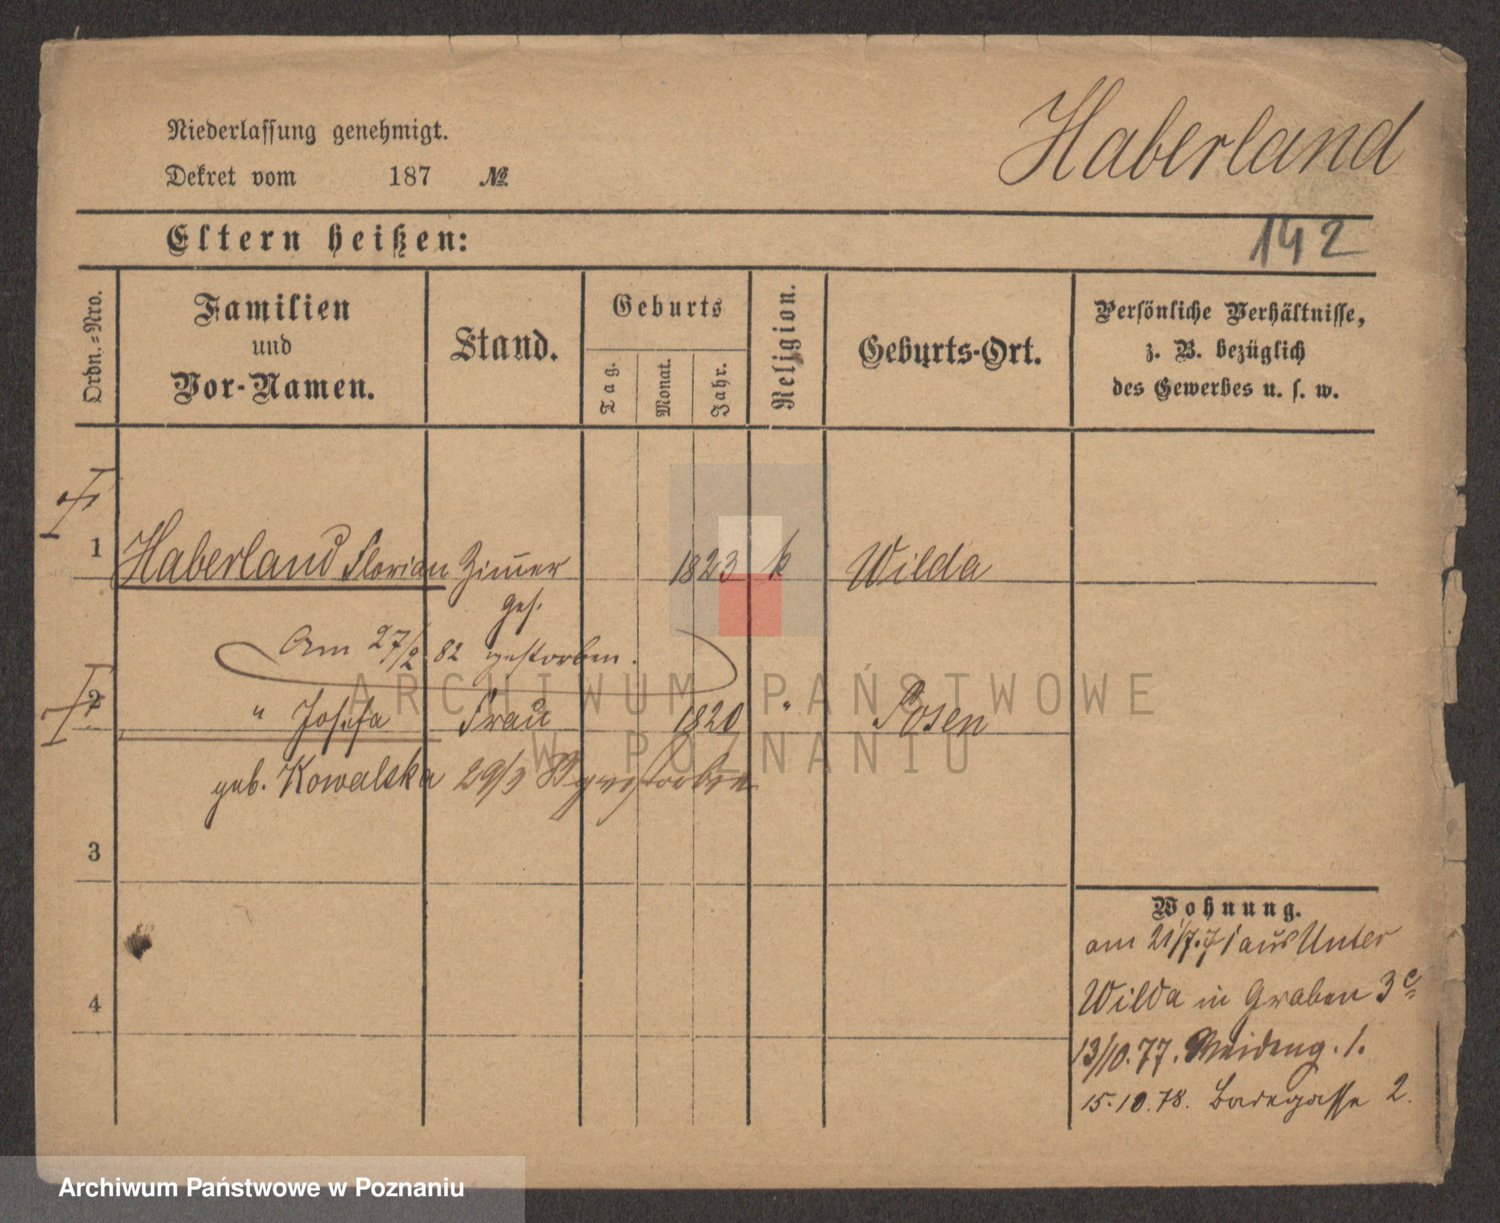 Niederlassung genehmigt.
Haberland
Dekret vom 187 №
Eltern heißen:
142
Ordn.-Nro.
Familien
und
Vor-Namen.
Stand.
Geburts
Tag.
Monat.
Jahr.
Religion.
Geburts-Ort.
Persönliche Verhältnisse,
z. B. bezüglich
des Gewerbes u. s. w.
1 Haberland Florian Zimer 1823 k Wilda
ges.
Am 27/2 82 gestorben.
2 " Josefa Frau 1820 " Posen
geb. Kowalska 29/9 gestorben
3
4
Wohnung.
am 21/7.71 aus Unter
Wilda in Graben 3c
13/10.77. 1.
15.10.78. Badegasse 2.
ARCHIWUM PAŃSTWOWE
W POZNANIU
Archiwum Państwowe w Poznaniu